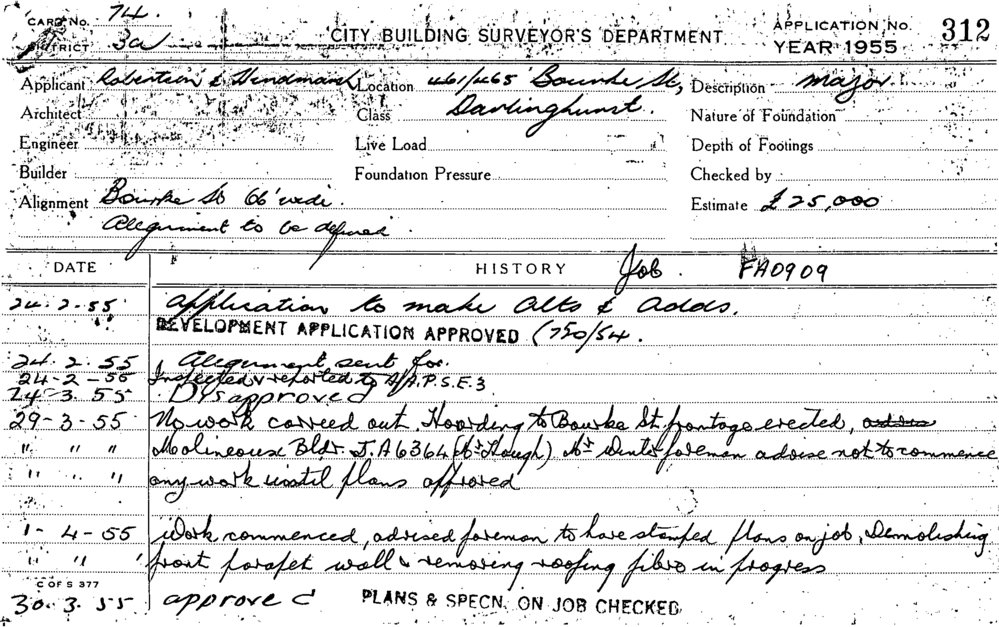 CARD No. 74.
DISTRICT 3a
CITY BUILDING SURVEYOR'S DEPARTMENT
APPLICATION No. 312
YEAR 1955
Applicant Robertson & Hindmarsh Location 461/465 Bourke St, Description major
Architect Class Darlinghurst. Nature of Foundation
Engineer Live Load Depth of Footings
Builder Foundation Pressure Checked by
Alignment Bourke St 66' wide. Estimate £25,000
Alignment to be defined.
DATE HISTORY Job. FA0909
24-2-55 Application to make Alts & Adds.
DEVELOPMENT APPLICATION APPROVED (750/54.
24.2.55 Alignment sent for.
24-2-55 Inspected & reported to A/A.P.S.E.3
24-3.55 Disapproved
29-3-55 No work carried out. Hoarding to Bourke St. frontage erected,
" " " Molineoux Bldr. J.A6364 (Mr Hough) Mr foreman advise not to commence
" " " any work until plans approved
1-4-55 Work commenced, advised foreman to have stamped plans on job. Demolishing
" " " front parapet wall & removing roofing fibro in progress
C OF S 377
30.3.55 approved PLANS & SPECN. ON JOB CHECKED